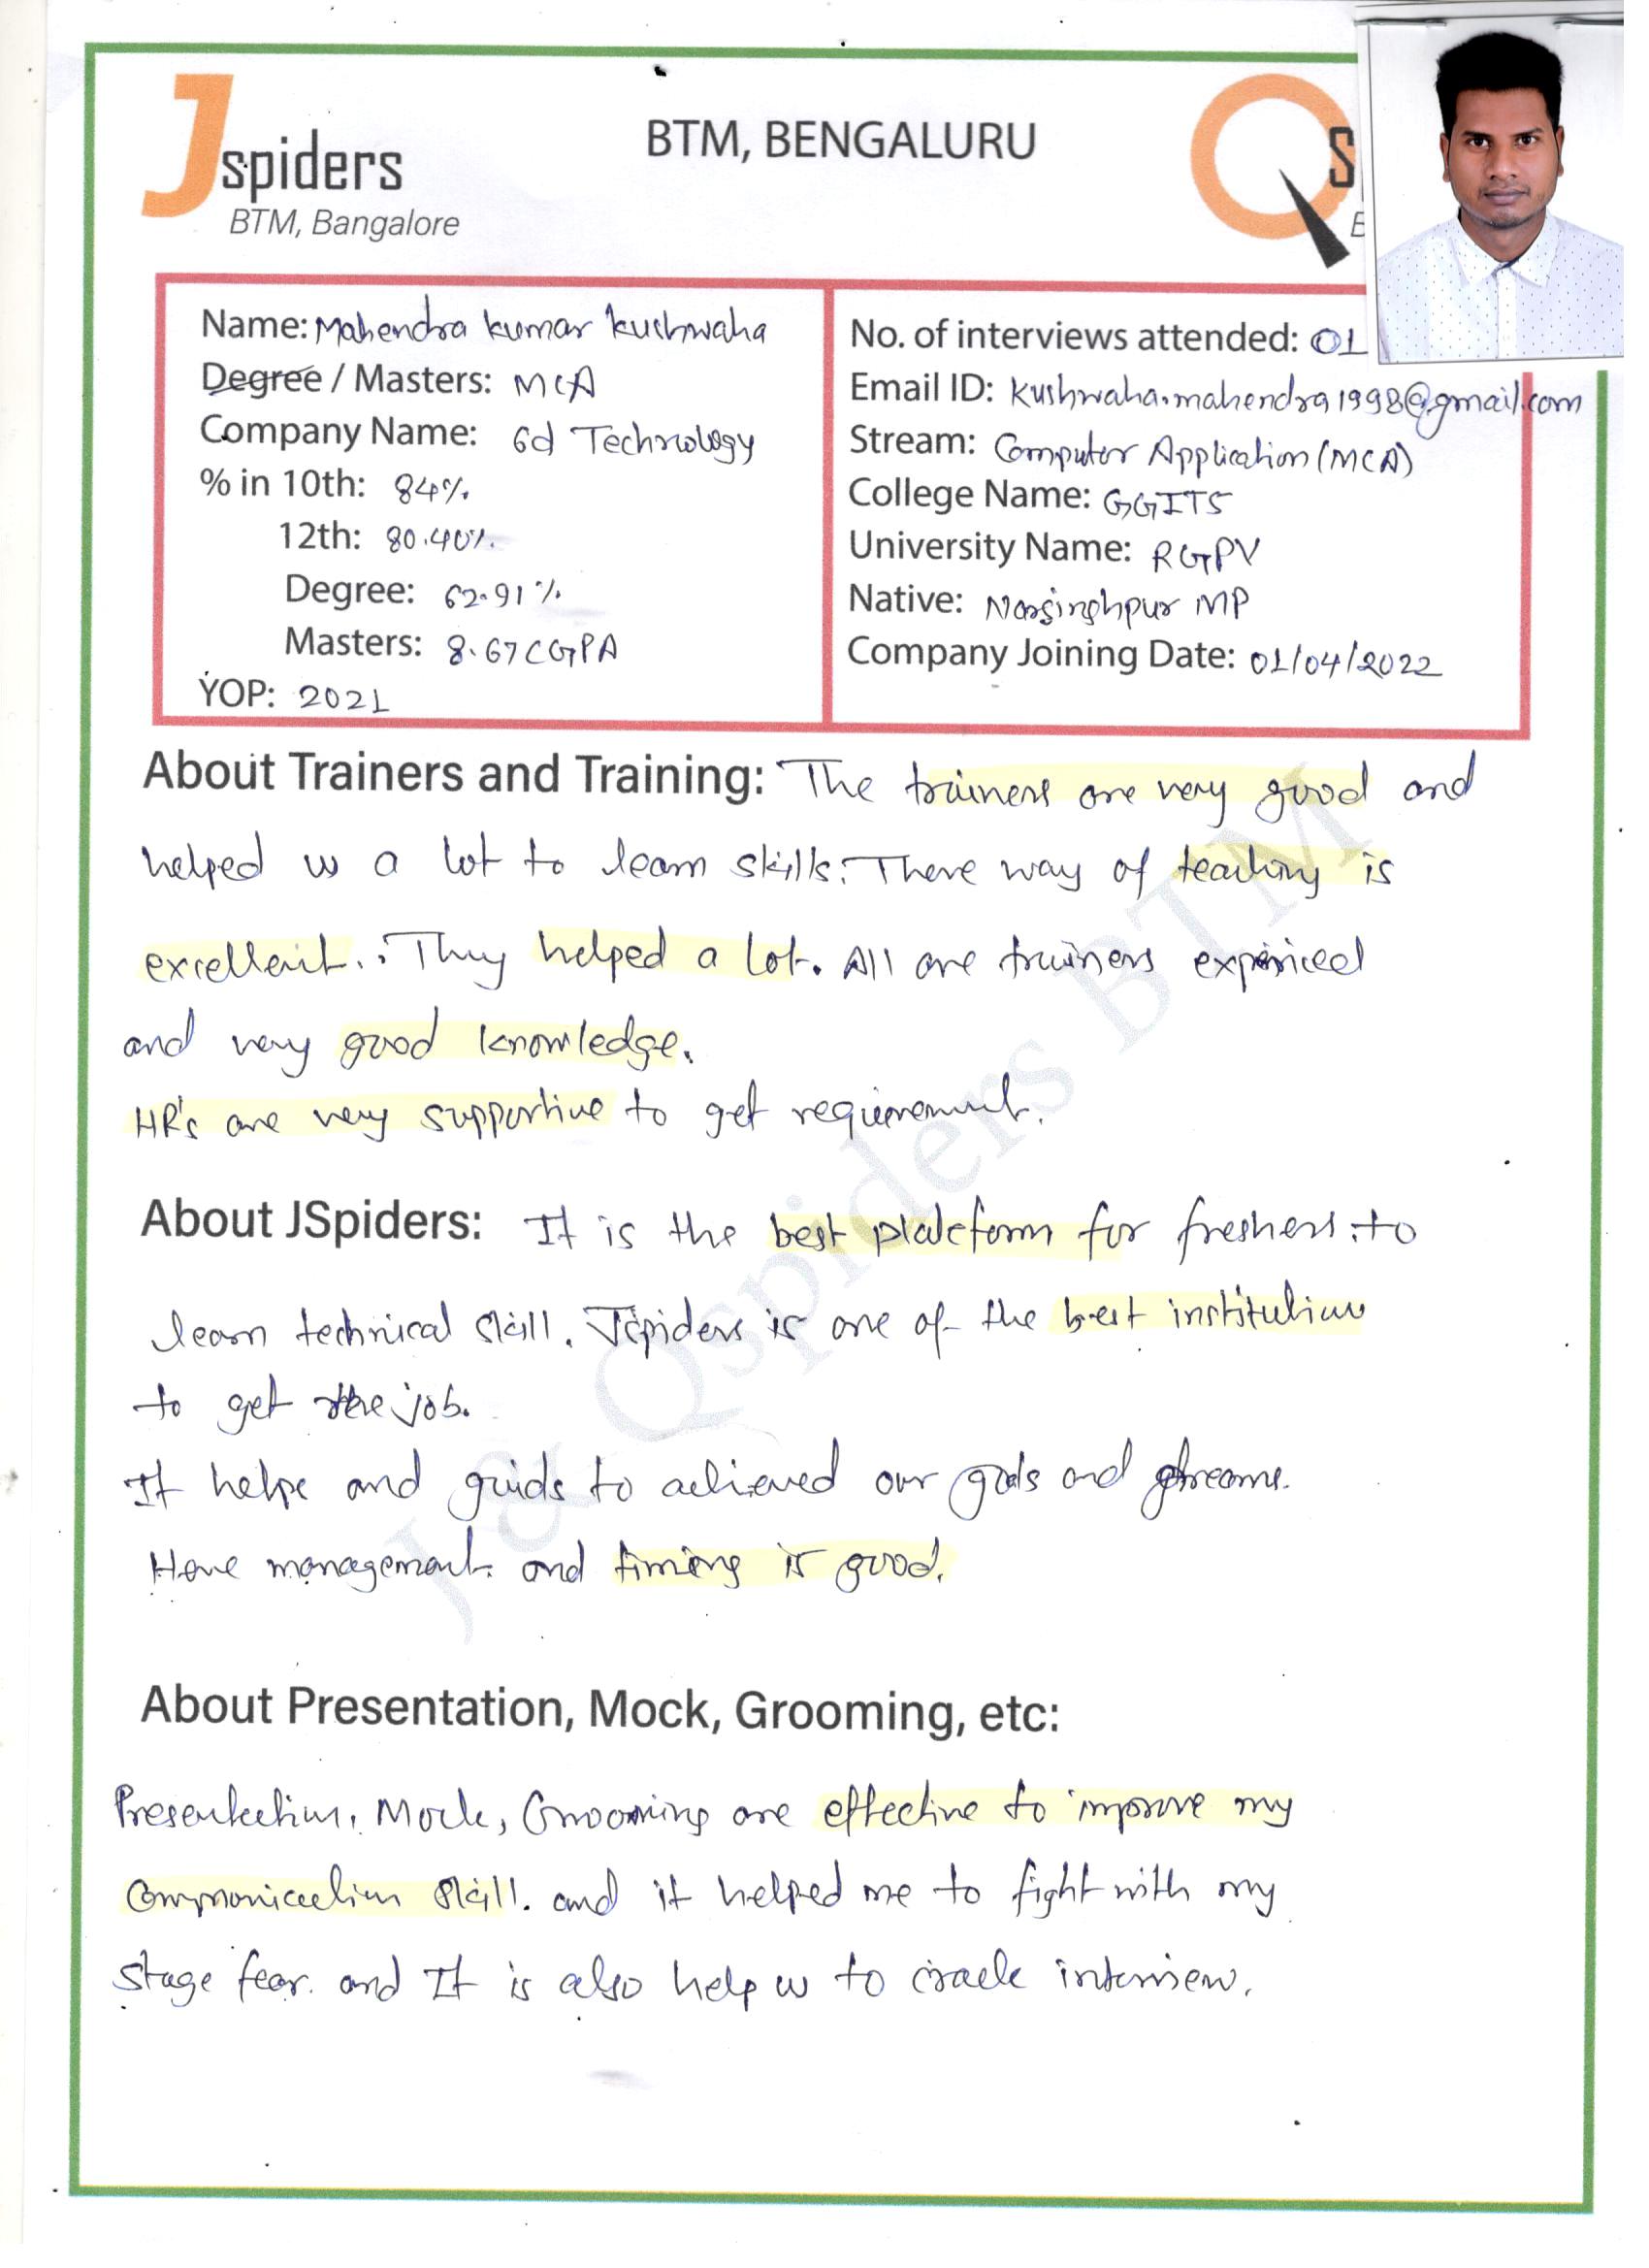 Jspiders
BTM, Bangalore
BTM, BENGALURU
Name: Mahendra kumar kushwaha
Degree / Masters: MCA
Company Name: 6d Technology
% in 10th: 84%
12th: 80.40%
Degree: 62.91%
Masters: 8.67 CGPA
YOP: 2021
No. of interviews attended: 01
Email ID: kushwaha.mahendra1998@gmail.com
Stream: Computer Application (MCA)
College Name: GGITS
University Name: RGPV
Native: Narsinghpur MP
Company Joining Date: 01/04/2022
About Trainers and Training: The trainers are very good and
helped us a lot to learn skills. There way of teaching is
excellent. They helped a lot. All are trainers expririced
and very good knowledge.
HR's are very supportive to get requirement.
About JSpiders: It is the best platform for freshers to
learn technical skill. Jspiders is one of the best institution
to get the job.
It helps and guids to achieved our goals and dreams.
Have management and timing is good.
About Presentation, Mock, Grooming, etc:
Presentation, Mock, Grooming are effective to improve my
Communication skill. and it helped me to fight with my
stage fear. and It is also help us to crack interview.
J & Qspiders BTM